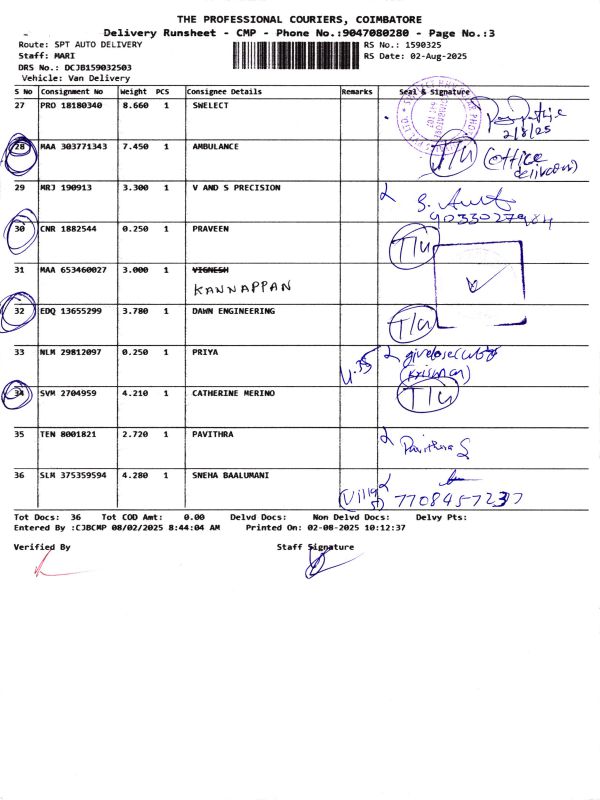 THE PROFESSIONAL COURIERS, COIMBATORE
Delivery Runsheet - CMP - Phone No.:9047080280 - Page No.:3
Route: SPT AUTO DELIVERY RS No.: 1590325
Staff: MARI RS Date: 02-Aug-2025
DRS No.: DCJB159032503
Vehicle: Van Delivery
S No Consignment No Weight PCS Consignee Details Remarks Seal & Signature
27 PRO 18180340 8.660 1 SWELECT
2/8/25
28 MAA 303771343 7.450 1 AMBULANCE T/U (office
delivery)
29 MRJ 190913 3.300 1 V AND S PRECISION
30 CNR 1882544 0.250 1 PRAVEEN T/U
31 MAA 653460027 3.000 1 VIGNESH
KANNAPPAN
32 EDQ 13655299 3.780 1 DAWN ENGINEERING T/U
33 NLM 29812097 0.250 1 PRIYA
34 SVM 2704959 4.210 1 CATHERINE MERINO T/U
35 TEN 8001821 2.720 1 PAVITHRA Pavithra S
36 SLM 375359594 4.280 1 SNEHA BAALUMANI
Tot Docs: 36 Tot COD Amt: 0.00 Delvd Docs: Non Delvd Docs: Delvy Pts:
Entered By :CJBCMP 08/02/2025 8:44:04 AM Printed On: 02-08-2025 10:12:37
Verified By Staff Signature